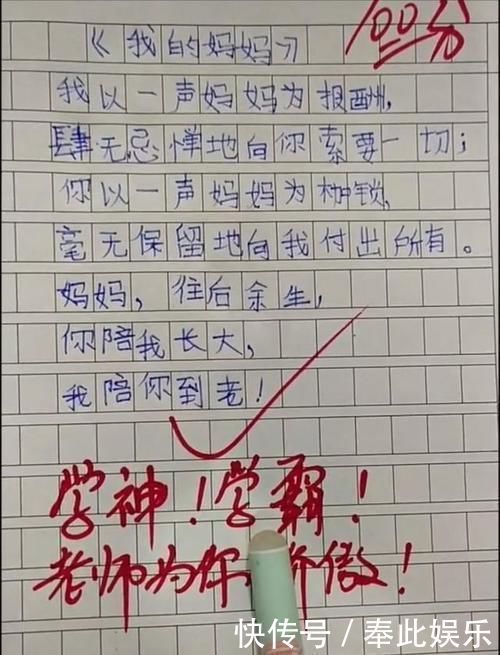 《我的妈妈》
100分
我以一声妈妈为报酬,
肆无忌惮地向你索要一切;
你以一声妈妈为枷锁,
毫无保留地向我付出所有。
妈妈，往后余生，
你陪我长大，
我陪你到老！
学神！学霸！
老师为你 傲！
快传号 / 奉此娱乐